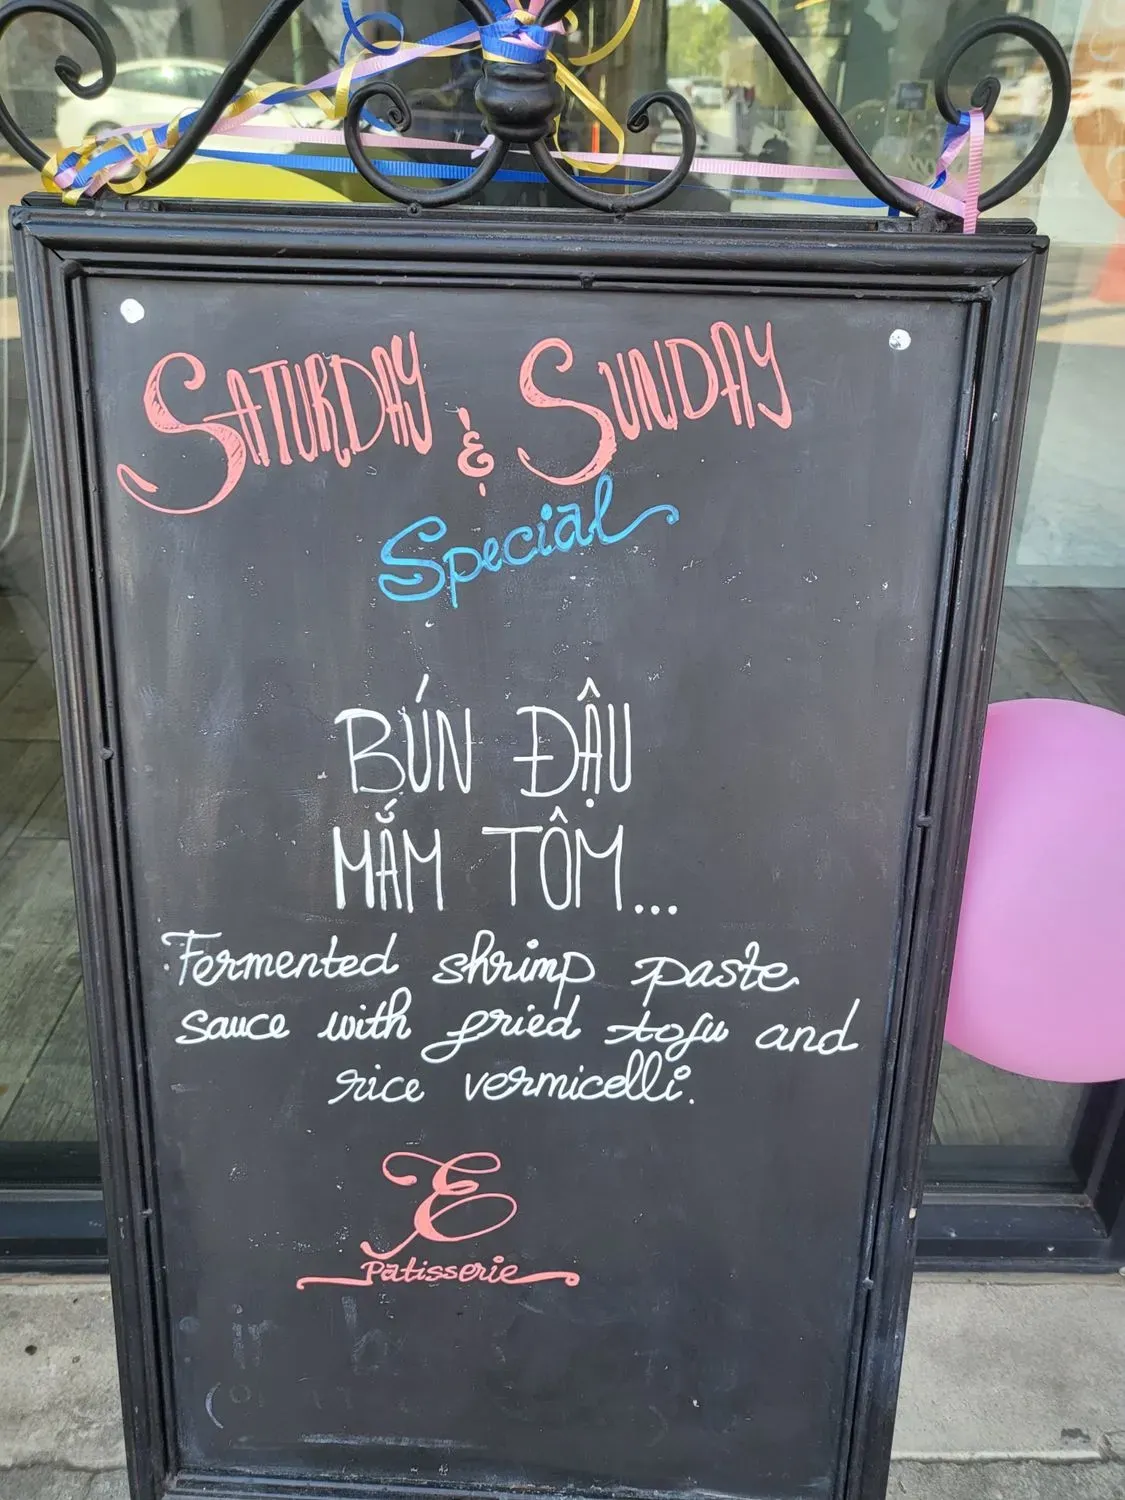 SATURDAY & SUNDAY
Special
BÚN ĐẬU
MẮM TÔM...
Fermented shrimp paste
sauce with fried tofu and
rice vermicelli.
E
Patisserie